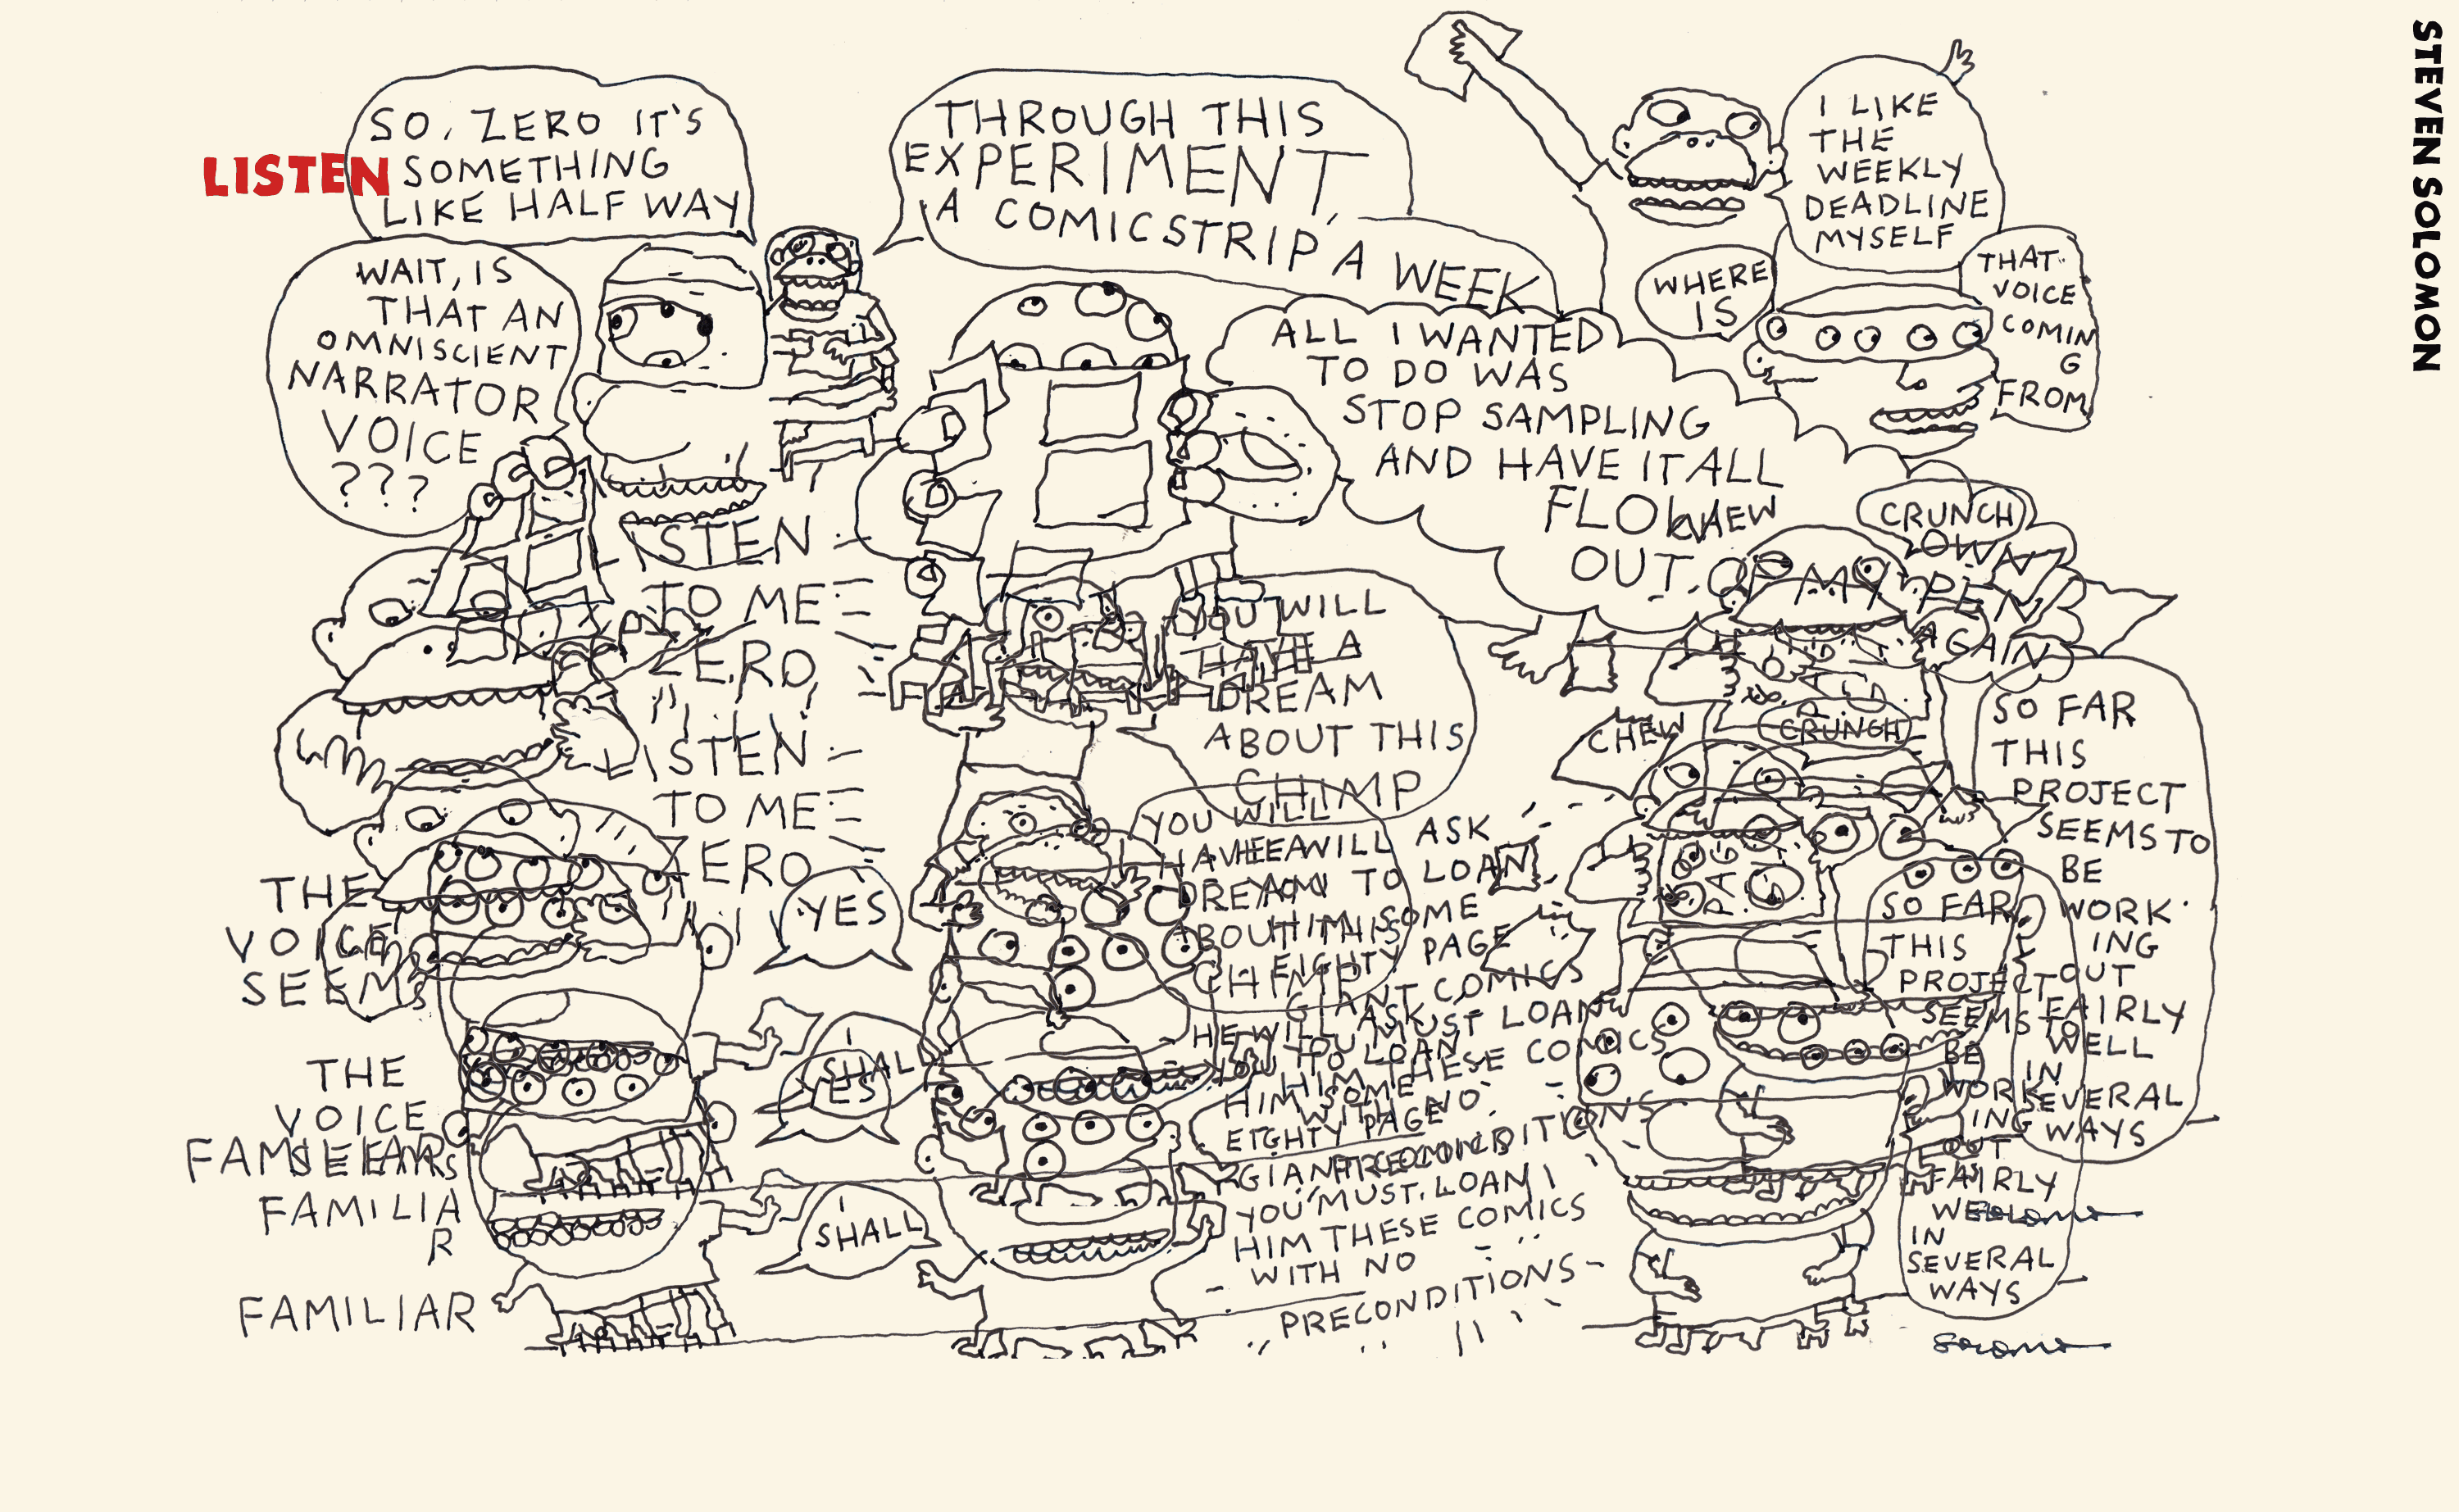 LISTEN
SO, ZERO IT'S
SOMETHING
LIKE HALF WAY
THROUGH THIS
EXPERIMENT,
A COMIC STRIP A WEEK
I LIKE
THE
WEEKLY
DEADLINE
MYSELF
STEVEN SOLOMON
WAIT, IS
THAT AN
OMNISCIENT
NARRATOR
VOICE
???
WHERE
IS
THAT
VOICE
COMIN
G
FROM
ALL I WANTED
TO DO WAS
STOP SAMPLING
AND HAVE IT ALL
FLOW
OUT OF MY
OWN
PEN
AGAIN
CHEW
CRUNCH
LISTEN
TO ME
ZERO
LISTEN
TO ME
ZERO
YOU WILL
HAVE A
DREAM
ABOUT THIS
CHIMP
CHEW
CRUNCH
SO FAR
THIS
PROJECT
SEEMS TO
BE
WORK
ING
OUT
FAIRLY
WELL
IN
SEVERAL
WAYS
YOU WILL
HAVE A
DREAM
ABOUT THIS
CHIMP
HE WILL ASK
YOU TO LOAN
HIM SOME
EIGHTY PAGE
GIANT COMICS
YOU MUST LOAN
HIM THESE COMICS
WITH NO
PRECONDITIONS
THE
VOICE
SEEMS
FAMILIAR
YES
I
SHALL
THE
VOICE
SEEMS
FAMILIA
R
FAMILIAR
YES
I
SHALL
HE WILL ASK
YOU TO LOAN
HIM SOME
EIGHTY PAGE
GIANT COMICS
YOU MUST LOAN
HIM THESE COMICS
WITH NO
PRECONDITIONS
SO FAR
THIS
PROJECT
SEEMS TO
BE
WORK
ING
OUT
FAIRLY
WELL
IN
SEVERAL
WAYS